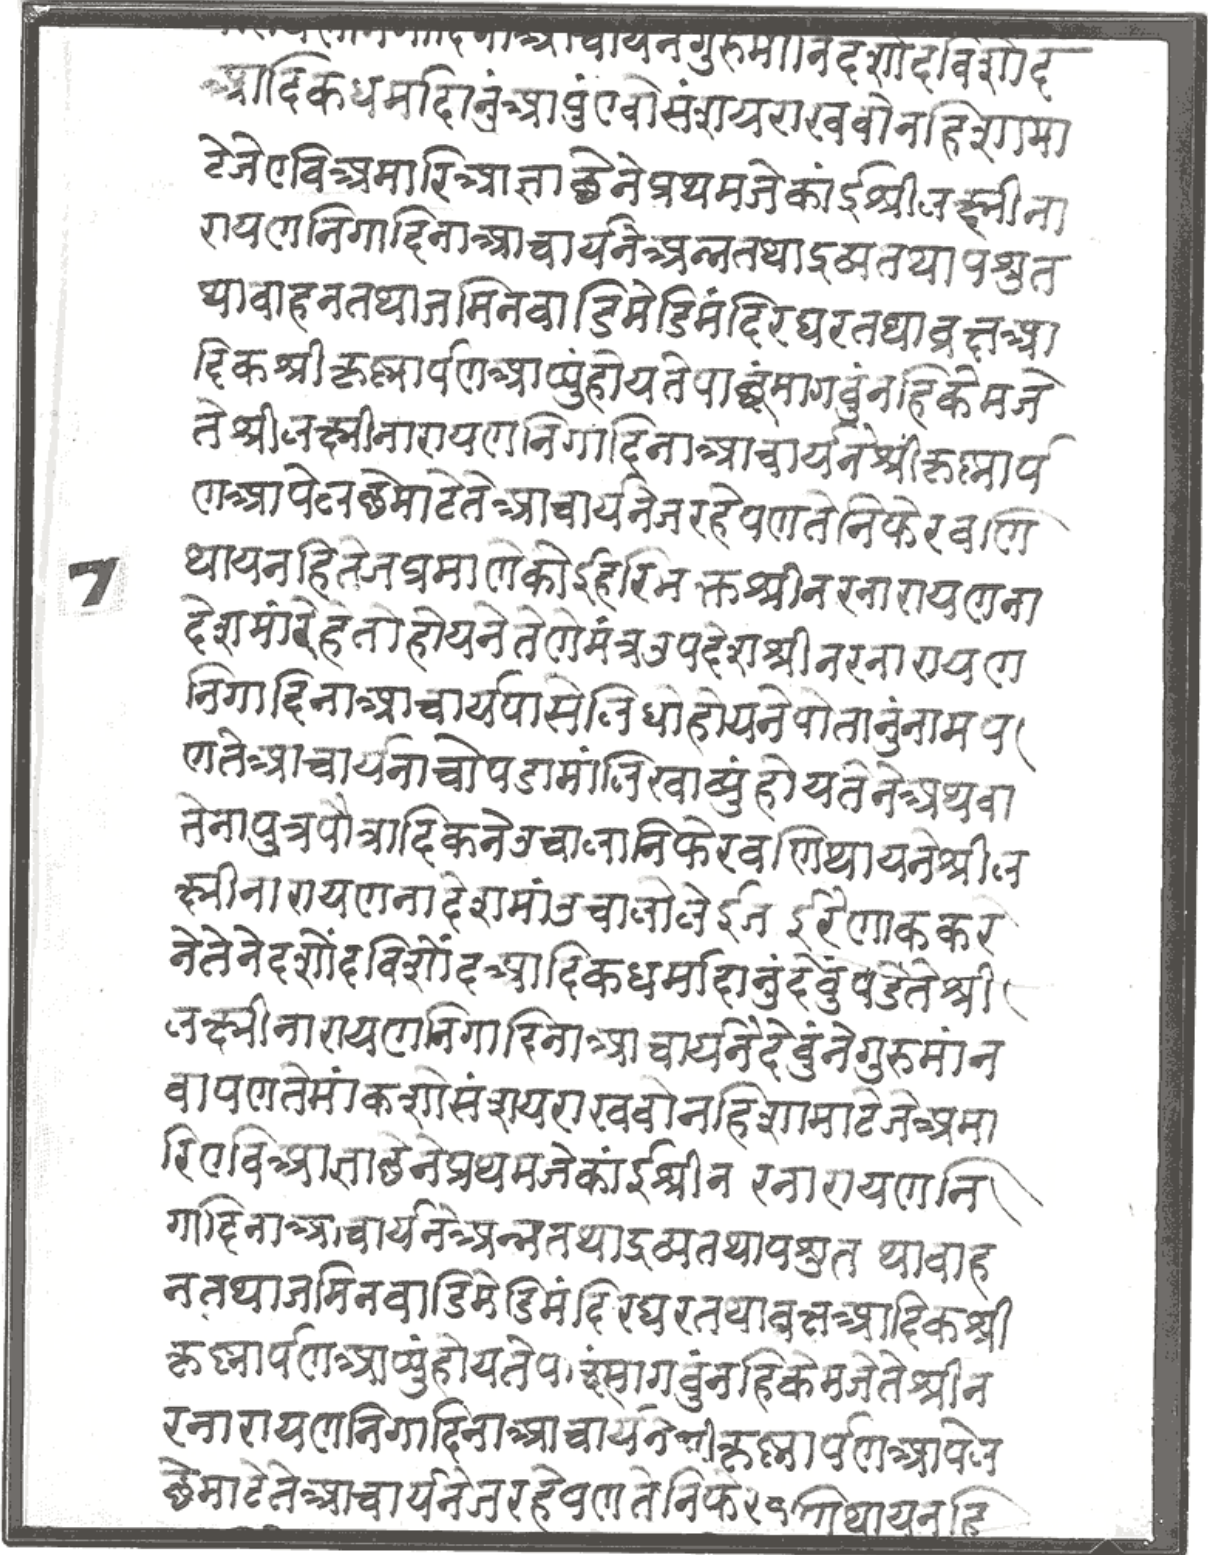 नगादिना आचार्यने गुरु मानि दशोंद विशोंद
आदिक धर्मादानुं आपुं एवो संशय राखवो नहि शा मा
टे जे एवि अमारि आज्ञा छे ने प्रथम जे कांई श्री लक्ष्मी ना
रायणनि गादिना आचार्यने अन्न तथा द्रव्य तथा पशु त
था वाहन तथा जमिन वाडि मेडि मंदिर घर तथा व्रक्ष आ
दिक श्री क्रष्णार्पण आप्युं होय ते पाछुं मागवुं नहि केम जे
ते श्री लक्ष्मीनारायणनि गादिना आचार्यने श्री क्रष्णार्प
ण आपेल छे माटे ते आचार्यने ज रहे पण तेनि फेरवणि
थाय नहि तेज प्रमाणे कोई हरिभक्त श्री नरनारायणना
देशमां रेहेतो होय ने तेणे मंत्र उपदेश श्री नरनारायण
नि गादिना आचार्य पासे लिधो होय ने पोतानुं नाम प
ण ते आचार्यना चोपडामां लिखाव्युं होय तेने अथवा
तेना पुत्र पौत्रादिकने उचालानि फेरवणि थाय ने श्री ल
क्ष्मीनारायणना देशमां उचालो लेई जई रेणाक करे
ने तेने दशोंद विशोंद आदिक धर्मादानुं देवुं पडे ते श्री
लक्ष्मीनारायणनि गादिना आचार्यने देवुं ने गुरु मांन
वा पण तेमां कशो संशय राखवो नहि शा माटे जे अमा
रि एवि आज्ञा छे ने प्रथम जे कांई श्री नरनारायणनि
गादिना आचार्यने अन्न तथा द्रव्य तथा पशु तथा वाह
न तथा जमिन वाडि मेडि मंदिर घर तथा व्रक्ष आदिक श्री
क्रष्णार्पण आप्युं होय ते पाछुं मागवुं नहि केम जे ते श्री न
रनारायणनि गादिना आचार्यने श्री क्रष्णार्पण आपेल
छे माटे ते आचार्यने ज रहे पण तेनि फेरवणि थाय नहि